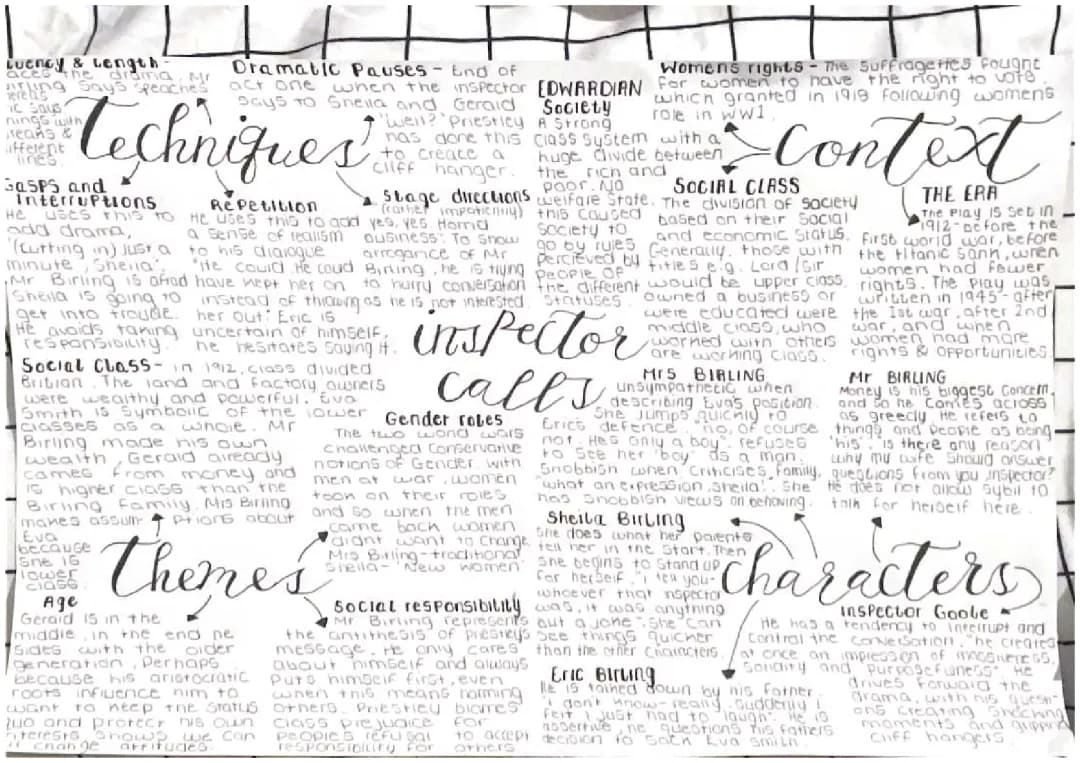 Fluency & Length -
Paces the drama, Mr
Birling says speaches
Dramatic Pauses - End of
act one when the inspector
says to Sheila and Gerald
'Well?' Priestley
has done this
to create a
cliff hanger.
Techniques
Gasps and
Interruptions
He uses this to
add drama,
'(cutting in) Just a
minute, Sheila'.
Mr Birling is afraid
Sheila is going to
get into trouble.
He avoids taking
responsibility.
Repetition
He uses this to add
a sense of realism
to his dialogue
"He could He coud
have kept her on
instead of throwing
her out". Eric is
uncertain of himself,
he hesitates saying it.
Stage directions
(rather impatiently)
yes, yes. Horrid
business': To show
arrogance of Mr
Birling, he is trying
to hurry conversation
as he is not interested.
EDWARDIAN
Society
A strong
class system with a
huge divide between
the rich and
poor. No
welfare state.
this caused
society to
go by rules
percieved by
people of
the different
statuses.
Womens rights - The suffragettes fought
for women to have the right to vote.
which granted in 1918 following womens
role in WW1.
Context
SOCIAL CLASS
The division of society
based on their social
and economic status.
Generally, those with
titles e.g. Lord/Sir
would be upper class.
owned a business or
were educated were
middle class, who
worked with others
are working class.
THE ERA
The play is set in
1912-before the
first world war, before
the titanic sank, when
women had fewer
rights. The play was
written in 1945-after
the 1st war, after 2nd
war, and when
women had more
rights & opportunities.
inspector
calls
Social Class - in 1912, class divided
Britian. The land and factory owners
were wealthy and powerful. Eva
Smith is symbolic of the lower
classes as a whole. Mr
Birling made his own
wealth, Gerald already
comes from money and
is higher class than the
Birling family. Mrs Birling
makes assumptions about
Eva
because
she is
lower
class.
Gender roles
The two world wars
challenged conservative
notions of Gender with
men at war, women
took on their roles
and so when the men
came back women
didnt want to change.
Mrs Birling-traditional
Sheila-'New women'
Themes
Age
Gerald is in the
middle, in the end he
sides with the older
generation. Perhaps
because his aristocratic
roots influence him to
want to keep the status
quo and protect his own
interests. Shows we can
attitudes.
Social responsibility
Mr Birling represents
the antithesis of Priestleys
message. He only cares
about himself and always
puts himself first, even
when this means harming
others. Priestley blames
class prejudice for
people's refusal to accept
responsibility for others
MRS BIRLING
unsympathetic when
describing Eva's position.
She jumps quickly to
Erics defence. "no, of course
not. Hes only a boy". refuses
to see her 'boy' as a man.
Snobbish when criticises family,
"what an expression, Sheila!". She
has snobbish views on behaving.
Mr BIRLING
Money is his biggest concern,
and so he comes across
as greedy. He refers to
things and people as being
'his'. "is there any reason
why my wife should answer
questions from you, inspector?"
He does not allow Sybil to
talk for herself here.
Characters
Sheila Birling
She does what her parents
tell her in the start. Then
she begins to stand up
for herself. "I tell you-
whoever that inspector
was, it was anything
but a joke". She can
see things quicker
than the other characters.
Eric Birling
He is talked down by his father.
I don't know-really. Suddenly I
felt I just had to laugh'. He is
assertive, he questions his fathers
decision to sack Eva Smith.
Inspector Goole
He has a tendency to interrupt and
control the conversation. "he creates
at once an impression of massiveness,
solidity and purposefulness". He
drives forward the
drama, with his quest-
ons creating shocking
moments and gripping
cliff hangers.